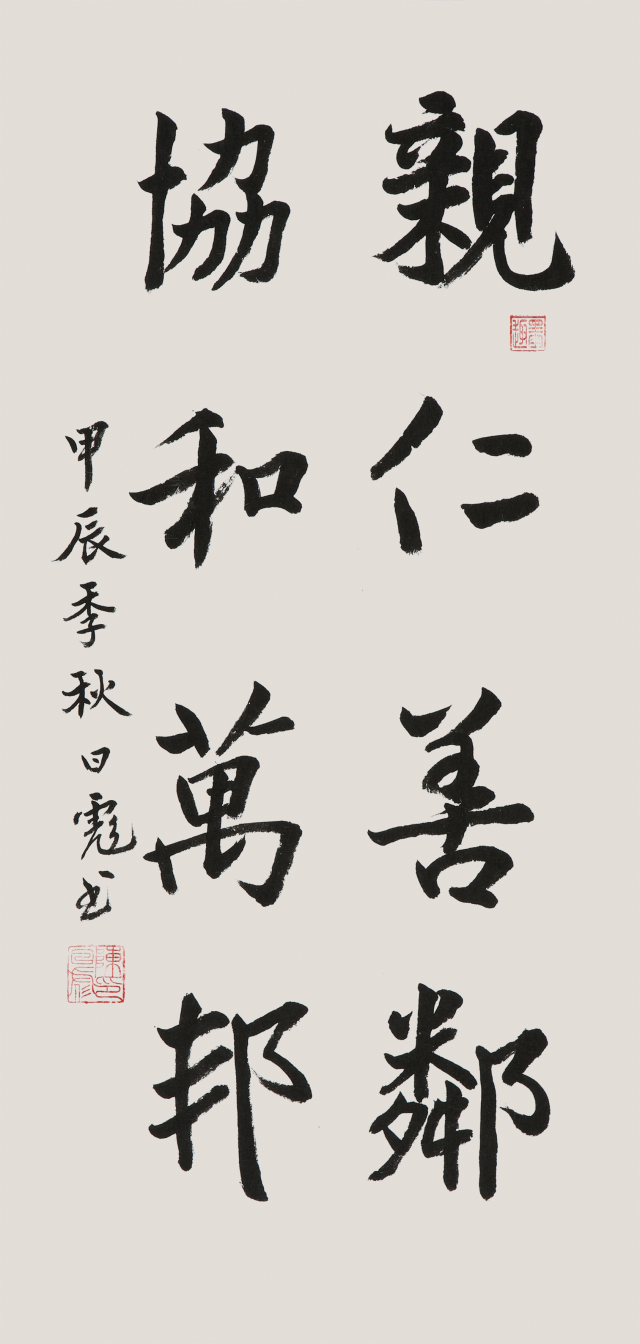 親仁善鄰
協和萬邦
甲辰季秋日霓书